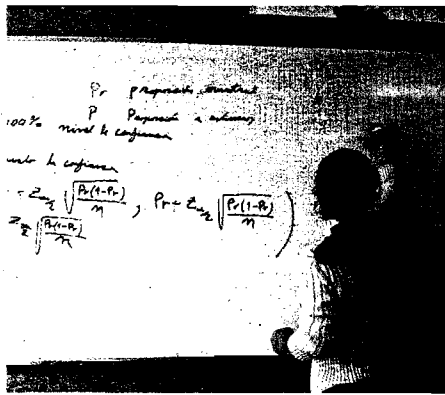 Pr proporción muestral
P Proporción a estimar
100% nivel de confianza
de confianza
- Z_{α/2} √(Pr(1-Pr)/n) , Pr + Z_{α/2} √(Pr(1-Pr)/n) )
Z_{α/2} √(Pr(1-Pr)/n)